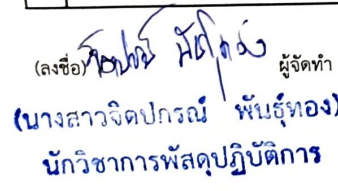 (ลงชื่อ) ผู้จัดทำ
(นางสาวจิตปกรณ์ พันธุ์ทอง)
นักวิชาการพัสดุปฏิบัติการ